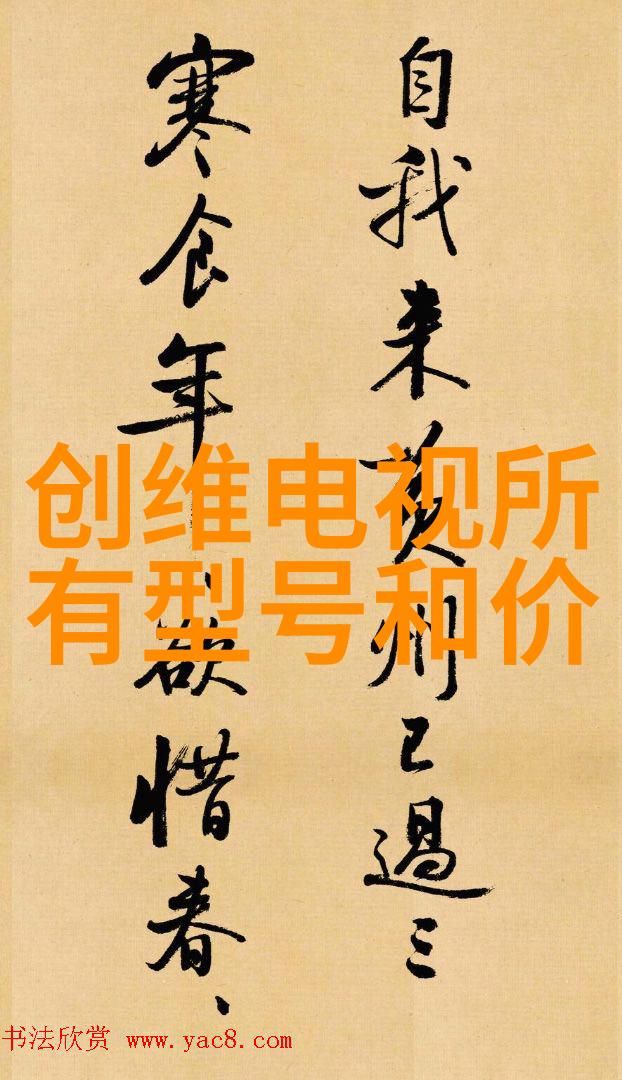 自我来黄州已過三
寒食年、欲惜春、
创维电视所
有型号和价
书法欣赏 www.yac8.com